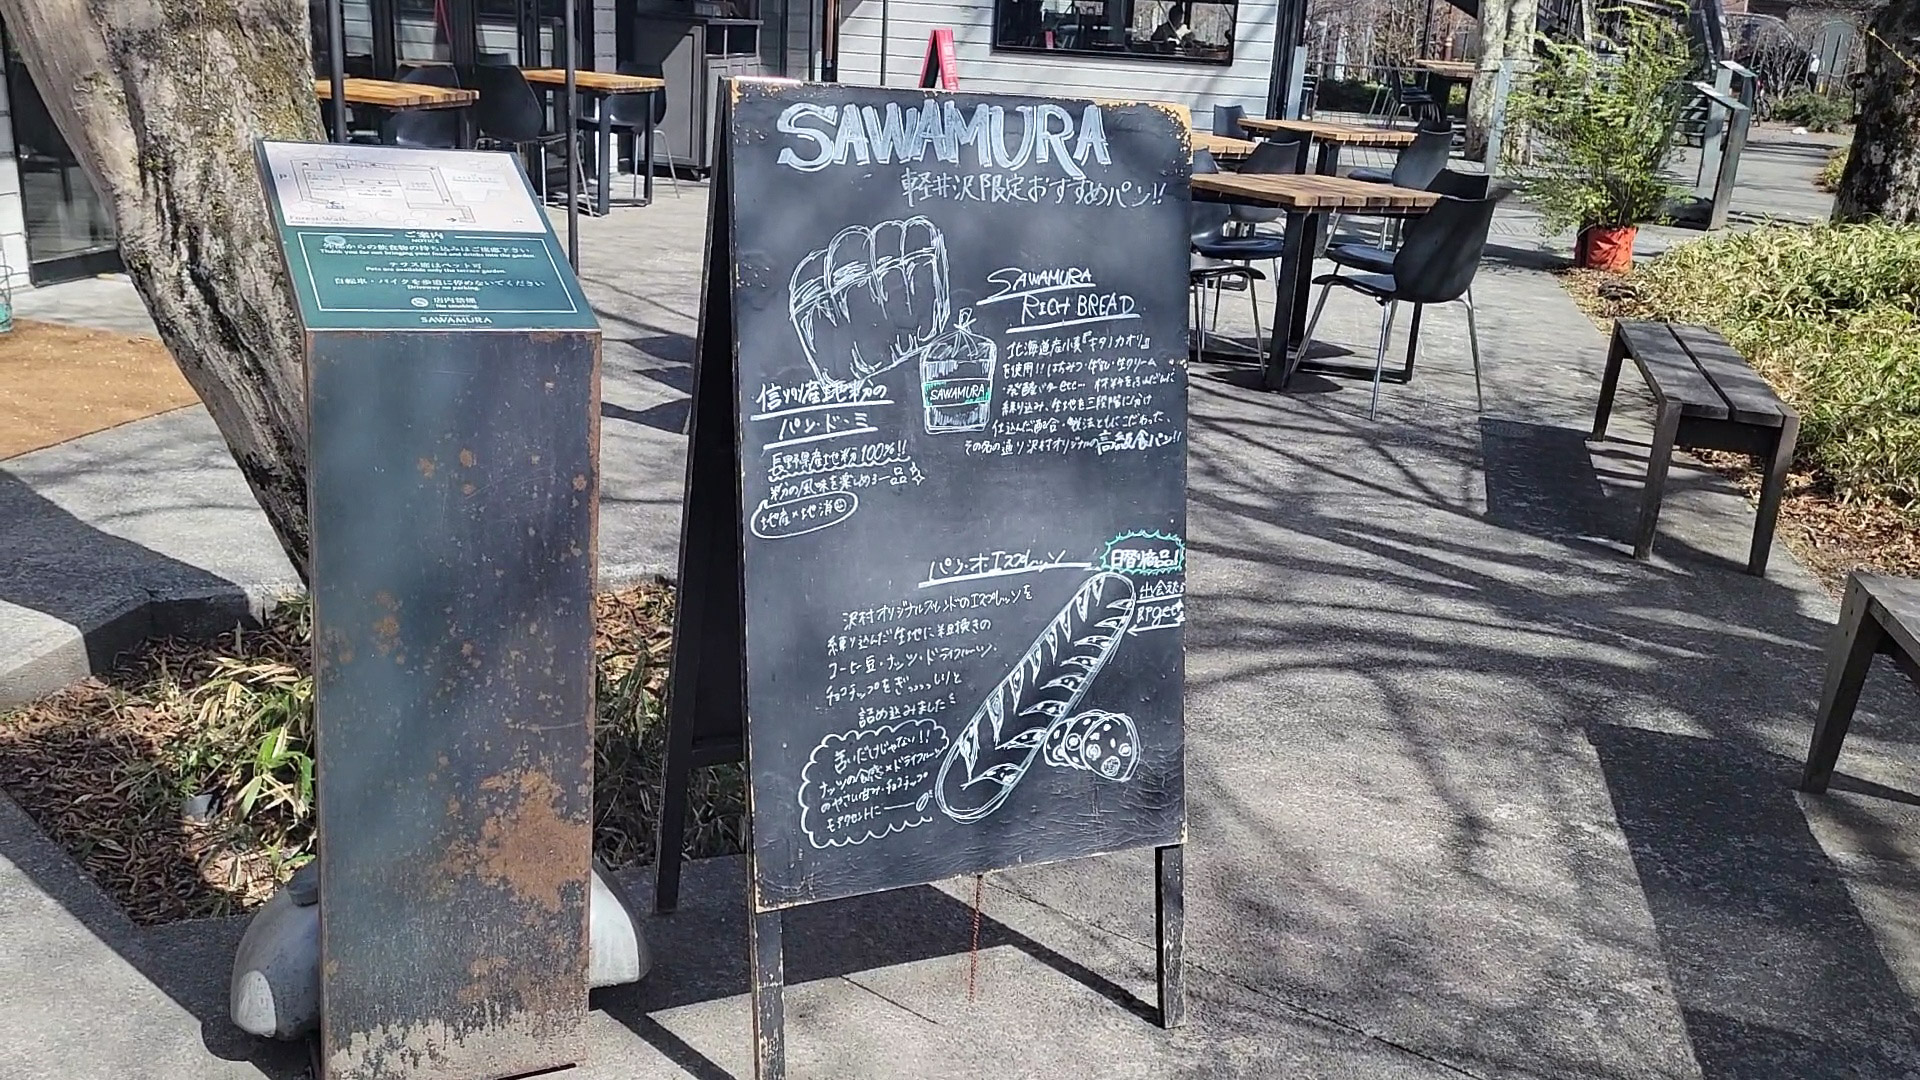 SAWAMURA
軽井沢限定おすすめパン!!
SAWAMURA
RICH BREAD
北海道産小麦『キタノカオリ』
を使用!! はちみつ・牛乳・生クリーム
・発酵バターetc… 材料をふんだんに
練り込み、生地を三段階に分け
仕込んだ配合・製法ともにこだわった、
その名の通り沢村オリジナルの高級食パン!!
SAWAMURA
信州産地粉の
パン・ド・ミ
長野県産地粉100%!!
粉の風味を楽しめる一品
地産×地消
パン・オ・エスプレッソ
沢村オリジナルブレンドのエスプレッソを
練り込んだ生地に、粗挽きの
コーヒー豆・ナッツ・ドライフルーツ、
チョコチップをぎっっっっしりと
詰め込みました
苦いだけじゃない!!
ナッツの食感×ドライフルーツ
のやさしい甘み・チョコチップ
もアクセントに
Forest Walk
ご案内
NOTICE
外部からの飲食物の持ち込みはご遠慮下さい
Thank you for not bringing your food and drinks into the garden.
テラス席はペット可
Pets are available only the terrace garden.
自転車・バイクを歩道に停めないでください
Driveway no parking.
店内禁煙
No smoking
SAWAMURA